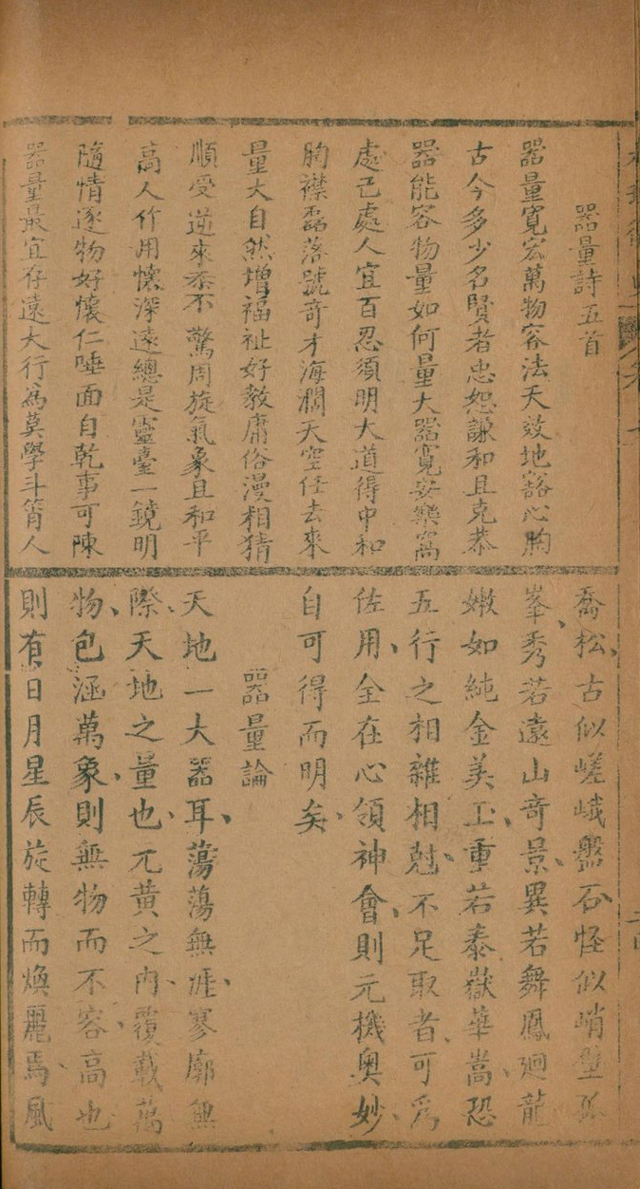 器量詩五首
器量寬宏萬物容法天效地豁心胸
古今多少名賢者忠恕謙和且克恭
器能容物量如何量大器寬安樂窩
處己處人宜百忍須明大道得中和
胸襟磊落號奇才海濶天空任去來
量大自然增福祉好教庸俗漫相猜
順受逆來忝不驚周旋氣象且和平
高人作用懷深遠總是靈臺一鏡明
隨情逐物好懷仁唾面自乾事可陳
器量最宜存遠大行爲莫學斗筲人
喬松、古似嵯峨盤石、怪似峭壁孤
峯、秀若遠山奇景、異若舞鳳廻龍
嫩如純金美玉、重若泰嶽華嵩、恐
五行之相雜相尅、不足取者、可爲
佐用、全在心領神會、則元機奧妙、
自可得而明矣、
器量論
天地一大器耳、蕩蕩無涯、寥廓無
際、天地之量也、元黃之內、覆載萬
物、包涵萬象、則無物而不容、高也
則有日月星辰旋轉而煥麗焉、風